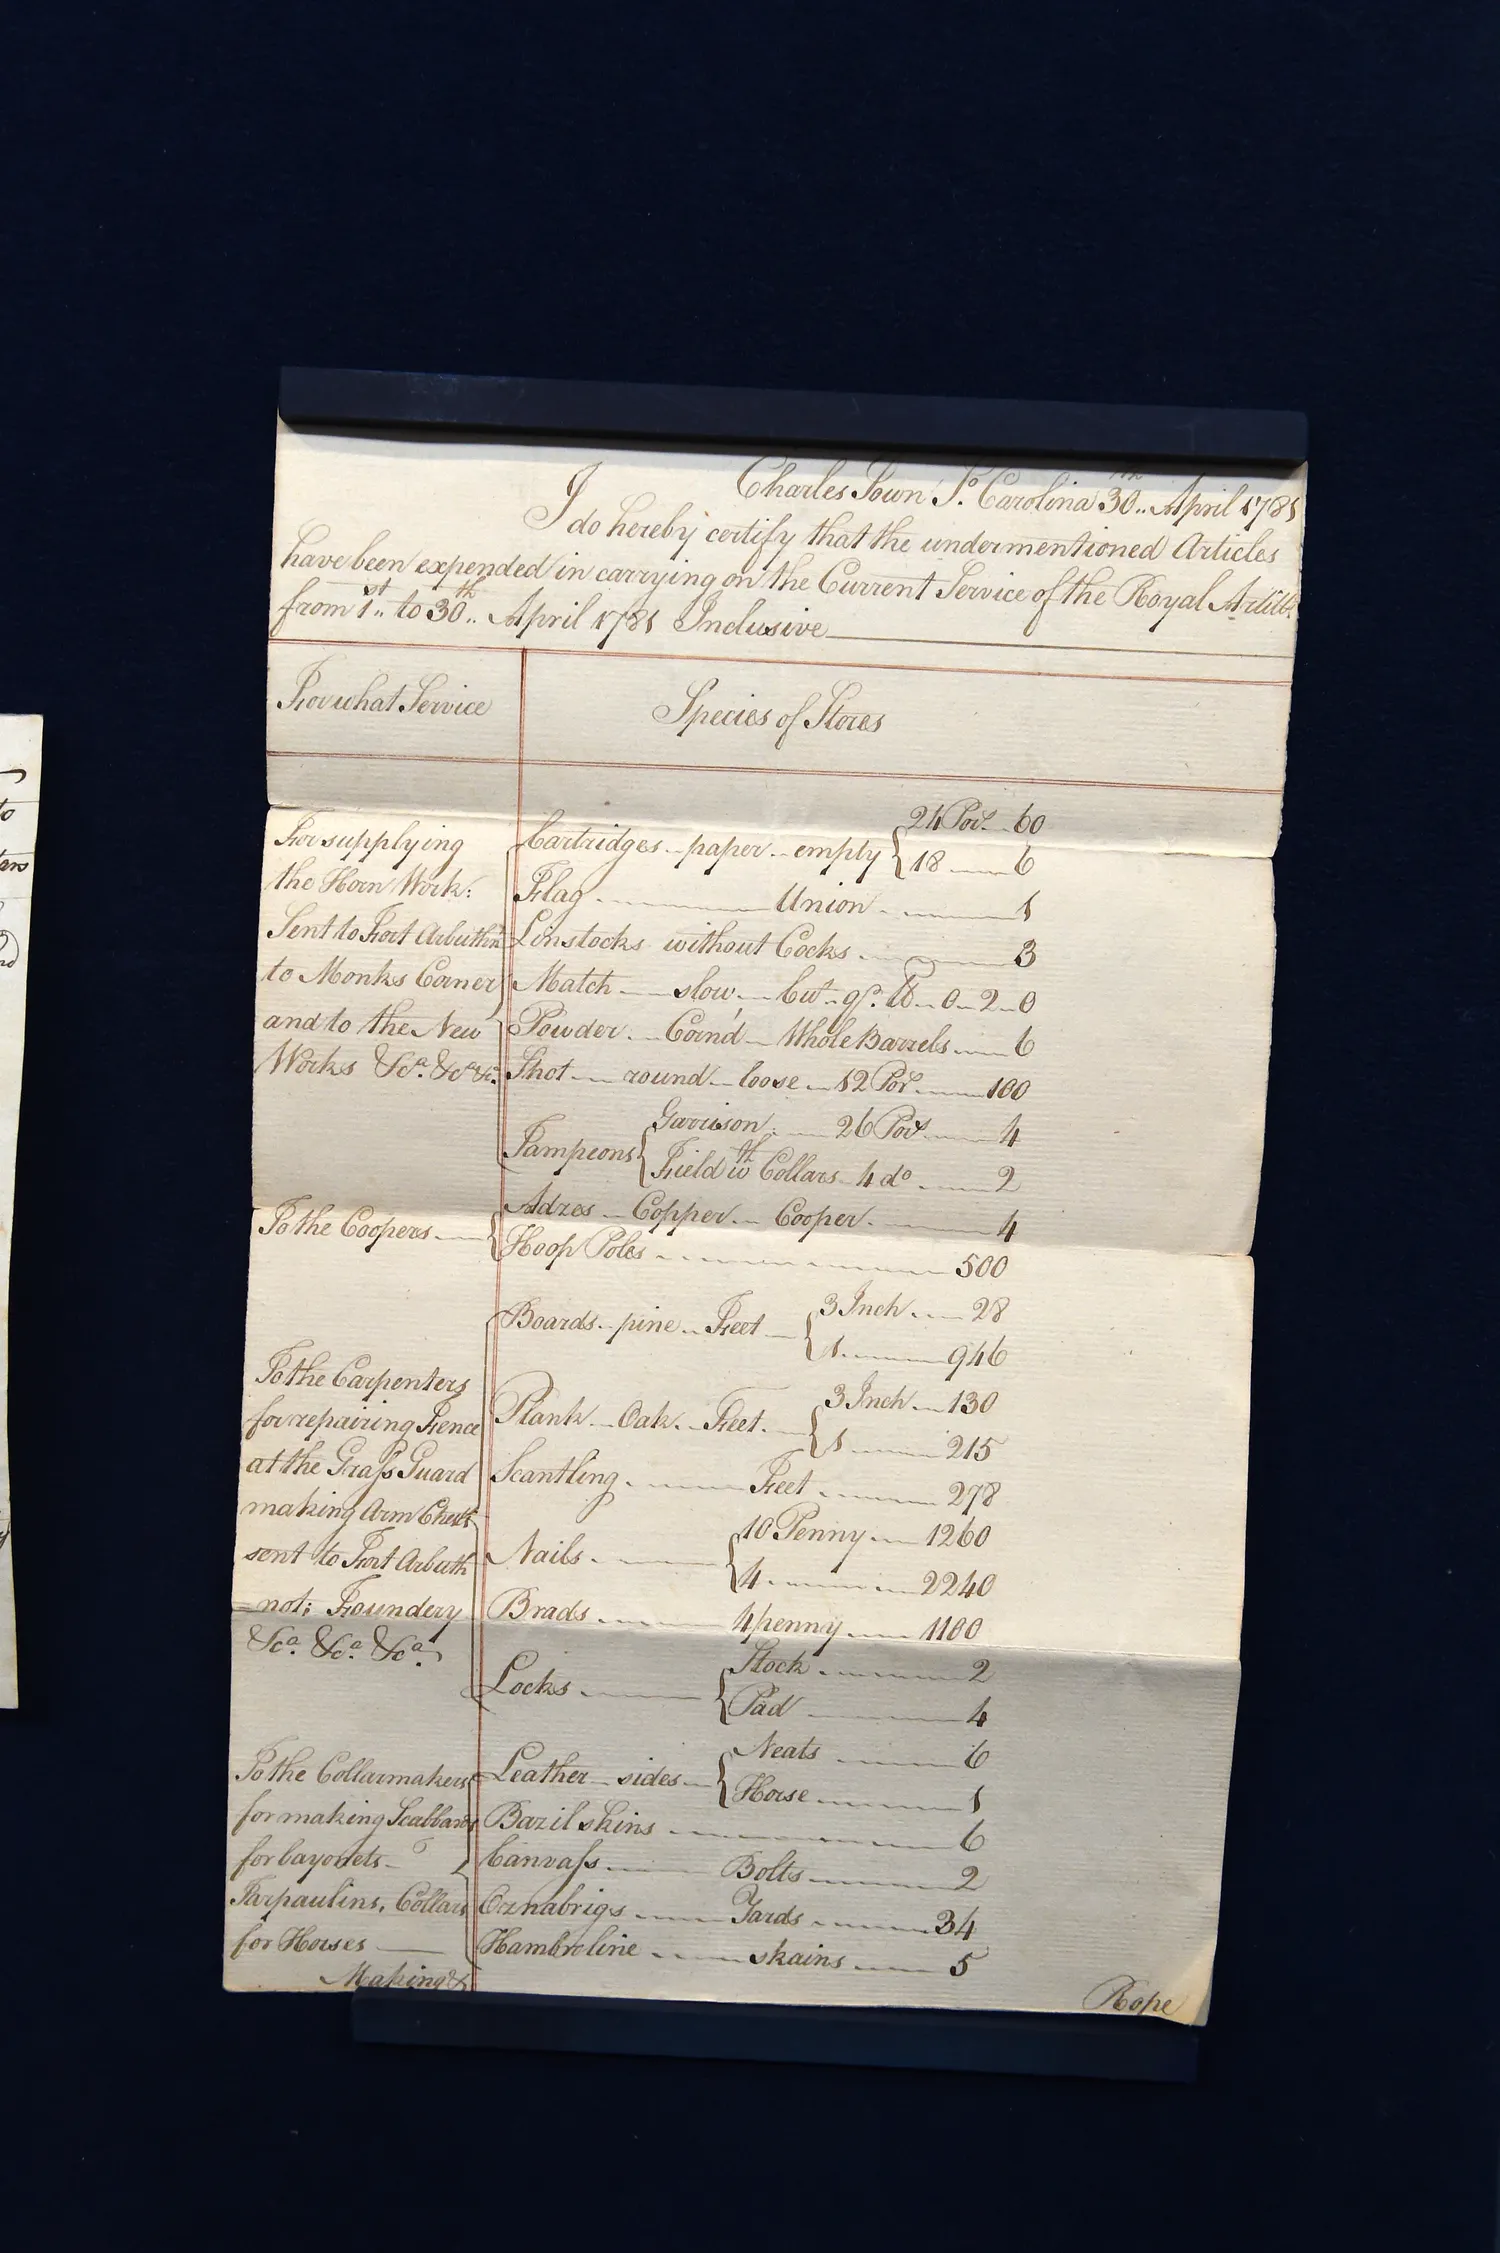 Charles Town So. Carolina 30th.. April 1781
I do hereby certify that the undermentioned Articles
have been expended in carrying on the Current Service of the Royal Artill:
from 1st.. to 30th.. April 1781 Inclusive
For what Service
Species of Stores
For supplying
the Horn Work:
Sent to Fort Arbuthnt
to Monks Corner
and to the New
Works &ca. &ca &c.
Cartridges paper empty { 24 Por. 60
18 6
Flag Union 1
Linstocks without Cocks 3
Match slow Cut qr. lb 0 2 0
Powder Corn'd Whole Barrels 6
Shot round loose 12 Por. 100
Tampeons { Garrison 26 Por. 4
Field wth Collars 4 do. 2
To the Coopers
Adzes Copper Cooper 4
Hoop Poles 500
To the Carpenters
for repairing Fence
at the Grass Guard
making Arm Chests
sent to Fort Arbuth
=not; Foundery
&ca. &ca. &ca.
Boards pine Feet { 3 Inch 28
1 946
Plank Oak Feet { 3 Inch 130
1 215
Scantling Feet 278
Nails { 10 Penny 1260
4 2240
Brads 4 penny 1100
Locks { Stock 2
Pad 4
To the Collarmakers
for making Scabbards
for bayonets
Tarpaulins, Collars
for Horses
Making &
Leather sides { Neats 6
Horse 1
Bazil skins 6
Canvass Bolts 2
Oznabrigs Yards 34
Hambroline skains 5
Rope
to